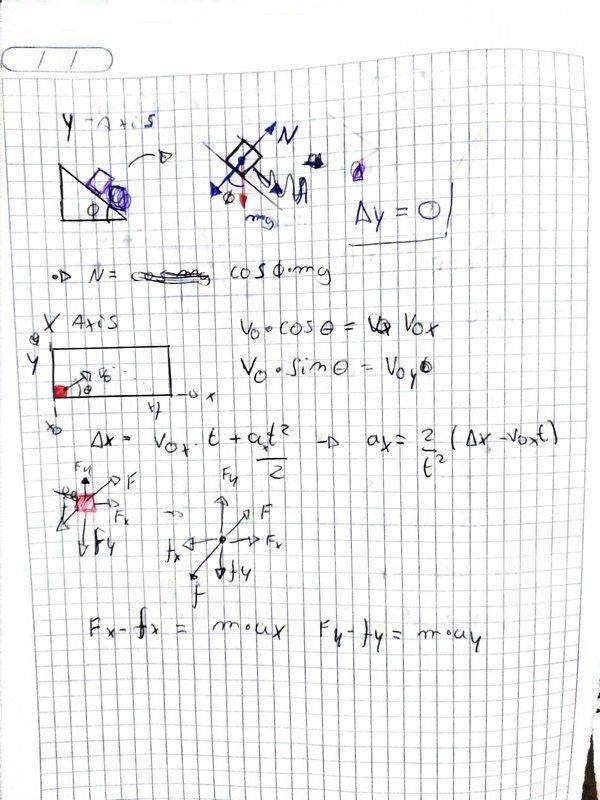 / /
Y-Axis
N
ϕ
ϕ
mg
Δy = 0
N = cosϕ·mg
X Axis
V0·cosθ = V0x
y
V0·sinθ = V0y
v0
θ
x
x0
xf
Δx = V0x·t + axt²/2 → ax = 2/t² (Δx - v0xt)
Fy
F
Fx
f
Fy
Fy
F
fx
Fx
fy
f
Fx - fx = m·ax Fy - fy = m·ay